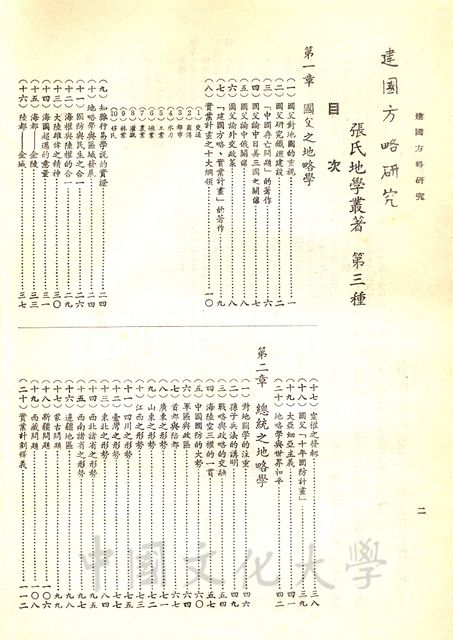 建國方略研究
建國方略研究
張氏地學叢著 第三種
目次
第一章 國父之地略學
(一)國父對地圖的重視……一
(二)國父研究鐵道建設……二
(三)「中國存亡問題」的著作……六
(四)國父論中日美三國之關係……八
(五)國父論中俄關係……八
(六)國父論外交政策……八
(七)「建國方略、實業計畫」的著作……九
(八)實業計畫之十大綱領……一〇
①交通
②商港
③都市
④水力
⑤工業
⑥礦業
⑦農業
⑧灌溉
⑨林業
⑩移民
(九)知難行易學說的實證……二四
(十)地略學與區域發展……二四
(十一)國防與民生之合一……二六
(十二)海權與陸權的合一……二九
(十三)大陸雄才之精神……三〇
(十四)海國超邁的意量……三一
(十五)海都——金陵……三三
(十六)陸都——金城……三七
二
(十七)空權之樞都……三八
(十八)國父「十年國防計畫」……三九
(十九)大亞細亞主義……四一
(二十)地略學與世界和平……四二
第二章 總統之地略學
(一)對地圖學的注重……四六
(二)孫子兵法的講明……四九
(三)戰略與政略的交融……五四
(四)海陸空三權的一貫……五七
(五)中國國防的大勢……六〇
(六)軍區與政區……六四
(七)首都與陪都……六七
(八)廣東之形勢……七一
(九)山東之形勢……七二
(十)江西之形勢……七三
(十一)四川之形勢……七七
(十二)臺灣之形勢……七七
(十三)東北之形勢……八四
(十四)西北諸省之形勢……九五
(十五)西南諸省之形勢……九八
(十六)邊疆地區……九九
(十七)蒙古問題……九九
(十八)新疆問題……一〇六
(十九)西藏問題……一〇八
(二十)實業計劃釋義……一一二
中國文化大學